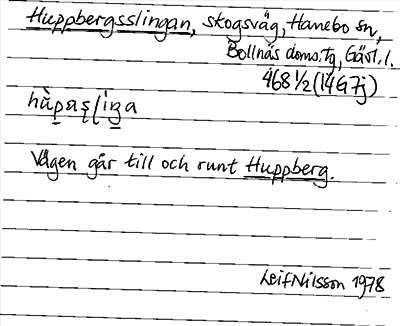 Huppbergsslingan, skogsväg, Hanebo sn,
Bollnäs doms.tg, Gävl. l.
468 1/2 (14G7j)
Vägen går till och runt Huppberg.
Leif Nilsson 1978